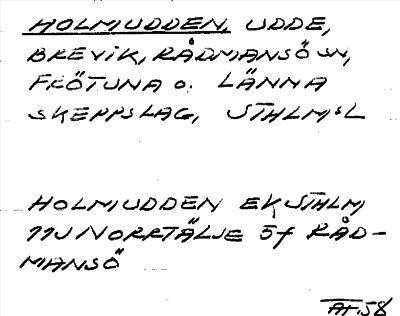 HOLMUDDEN, UDDE,
BREVIK, RÅDMANSÖ SN,
FRÖTUNA O. LÄNNA
SKEPPSLAG, STHLMSL
HOLMUDDEN EK STHLM
11J NORRTÄLJE 5f RÅD-
MANSÖ
AF.58